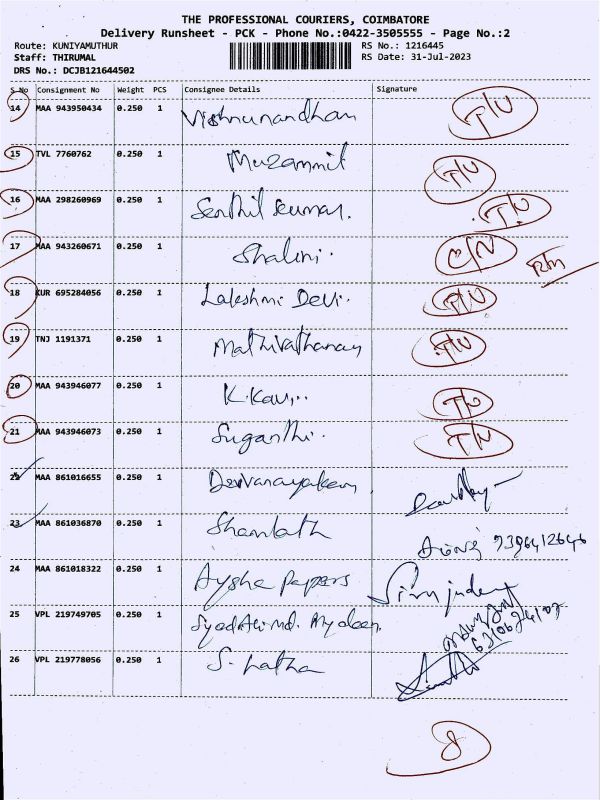 THE PROFESSIONAL COURIERS, COIMBATORE
Delivery Runsheet - PCK - Phone No.:0422-3505555 - Page No.:2
Route: KUNIYAMUTHUR RS No.: 1216445
Staff: THIRUMAL RS Date: 31-Jul-2023
DRS No.: DCJB121644502
S.No Consignment No Weight PCS Consignee Details Signature
14 MAA 943950434 0.250 1 Vishnunandhan T/U
15 TVL 7760762 0.250 1 Muzammil T/U
16 MAA 298260969 0.250 1 Senthil kumar. T/U
17 MAA 943260671 0.250 1 Shalini. C/N Rtn
18 KUR 695284056 0.250 1 Lakshmi Devi. T/U
19 TNJ 1191371 0.250 1 Mathivathanan T/U
20 MAA 943946077 0.250 1 K.Kavi.. T/U
21 MAA 943946073 0.250 1 Suganthi. T/U
22 MAA 861016655 0.250 1 Deivanayakam
23 MAA 861036870 0.250 1 Shamlath 9396412646
24 MAA 861018322 0.250 1 Aysha papers
25 VPL 219749705 0.250 1 Syed Ali Md. Mydeen.
26 VPL 219778056 0.250 1 S. Latha
8